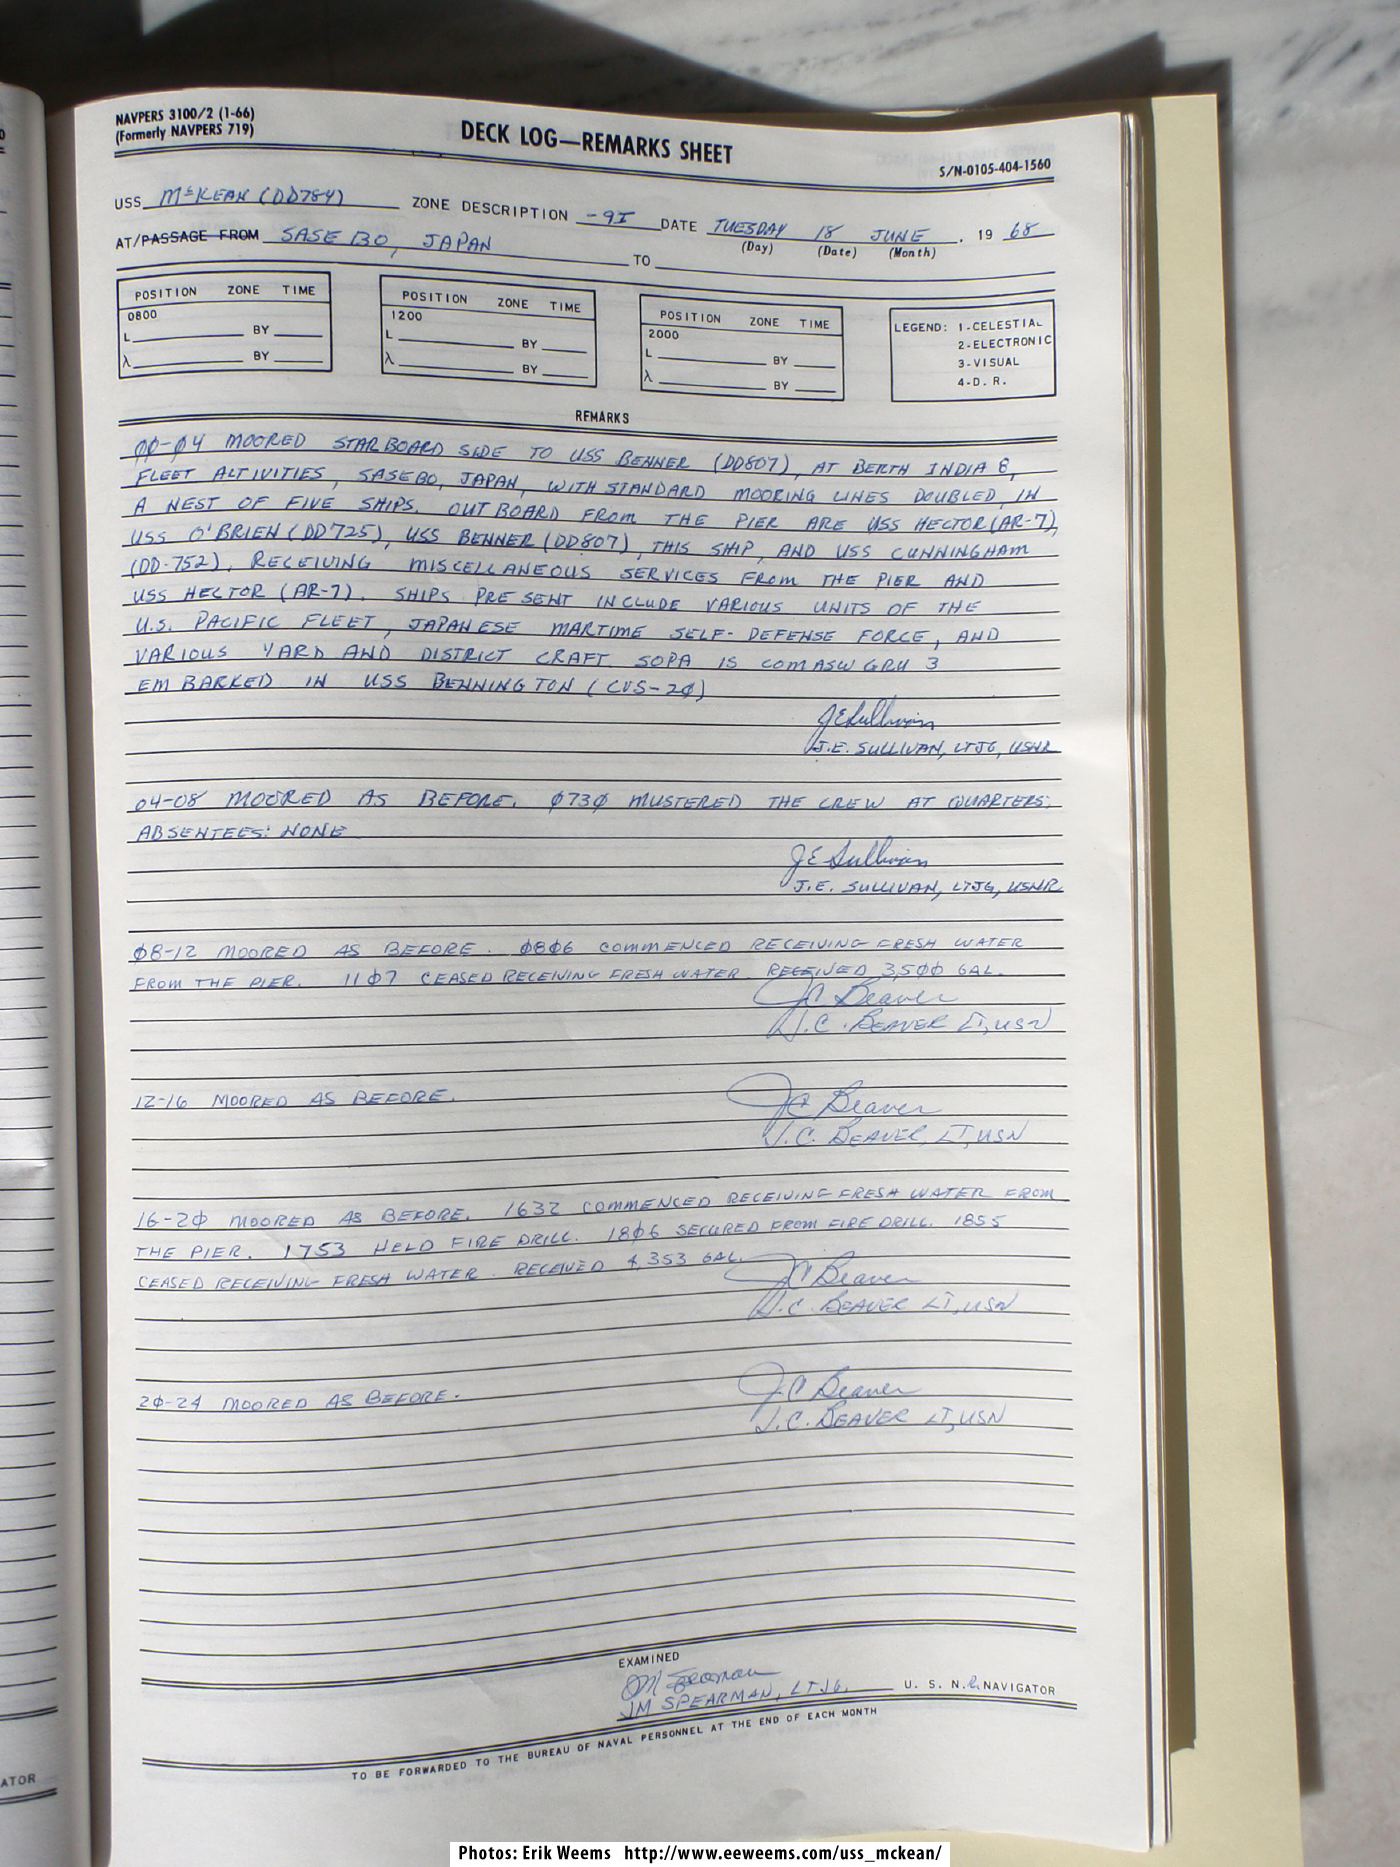 NAVPERS 3100/2 (1-66)
(Formerly NAVPERS 719)
DECK LOG—REMARKS SHEET
S/N-0105-404-1560
USS McKEAN (DD784) ZONE DESCRIPTION -9I DATE TUESDAY 18 JUNE, 19 68
(Day) (Date) (Month)
AT/PASSAGE FROM SASEBO, JAPAN TO
POSITION ZONE TIME
0800
L BY
λ BY
POSITION ZONE TIME
1200
L BY
λ BY
POSITION ZONE TIME
2000
L BY
λ BY
LEGEND: 1-CELESTIAL
2-ELECTRONIC
3-VISUAL
4-D. R.
REMARKS
ØØ-Ø4 MOORED STARBOARD SIDE TO USS BENNER (DD807), AT BERTH INDIA 8,
FLEET ALTIVITIES, SASEBO, JAPAN, WITH STANDARD MOORING LINES DOUBLED, IN
A NEST OF FIVE SHIPS. OUTBOARD FROM THE PIER ARE USS HECTOR (AR-7),
USS O'BRIEN (DD725), USS BENNER (DD807), THIS SHIP, AND USS CUNNINGHAM
(DD-752). RECEIVING MISCELLANEOUS SERVICES FROM THE PIER AND
USS HECTOR (AR-7). SHIPS PRESENT INCLUDE VARIOUS UNITS OF THE
U.S. PACIFIC FLEET, JAPANESE MARTIME SELF-DEFENSE FORCE, AND
VARIOUS YARD AND DISTRICT CRAFT. SOPA IS COMASWGRU 3
EMBARKED IN USS BENNINGTON (CVS-2Ø)
JESullivan
J.E. SULLIVAN, LTJG, USNR
04-08 MOORED AS BEFORE. Ø73Ø MUSTERED THE CREW AT QUARTERS;
ABSENTEES: NONE
JE Sullivan
J.E. SULLIVAN, LTJG, USNR
Ø8-12 MOORED AS BEFORE. Ø8Ø6 COMMENCED RECEIVING FRESH WATER
FROM THE PIER. 11Ø7 CEASED RECEIVING FRESH WATER. RECEIVED 3,5ØØ GAL.
JC Beaver
J.C. BEAVER LT, USN
12-16 MOORED AS BEFORE.
JC Beaver
J.C. BEAVER, LT, USN
16-2Ø MOORED AS BEFORE. 1632 COMMENCED RECEIVING FRESH WATER FROM
THE PIER. 1753 HELD FIRE DRILL. 18Ø6 SECURED FROM FIRE DRILL. 1855
CEASED RECEIVING FRESH WATER. RECEIVED 4,353 GAL.
JC Beaver
J.C. BEAVER LT, USN
2Ø-24 MOORED AS BEFORE.
J.C Beaver
J.C. BEAVER LT, USN
EXAMINED
JM Spearman
JM SPEARMAN, LTJG, U. S. N.R. NAVIGATOR
TO BE FORWARDED TO THE BUREAU OF NAVAL PERSONNEL AT THE END OF EACH MONTH
ATOR
Photos: Erik Weems http://www.eeweems.com/uss_mckean/